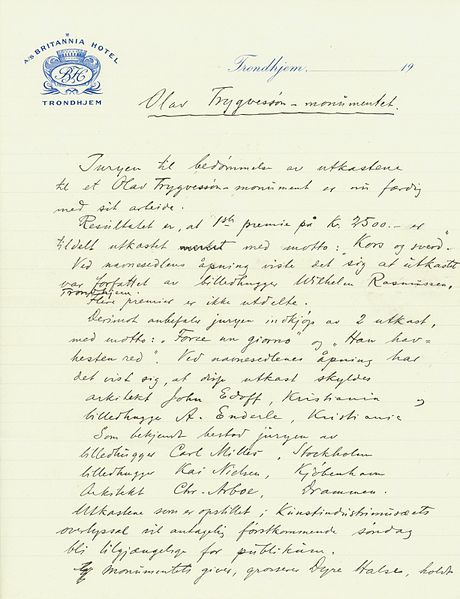 A/S BRITANNIA HOTEL
BH
TRONDHJEM
Trondhjem, 19
Olav Trygvesson-monumentet.
Juryen til bedømmelse av utkastene
til et Olav Trygvesson-monument er nu færdig
med sit arbeide.
Resultatet er, at 1ste premie på Kr. 2500.- er
tildelt utkastet med motto: "Kors og sverd".
Ved navnesedlens åpning viste det sig at utkastet
var forfattet av billedhugger Wilhelm Rasmussen,
Trondhjem.
Flere premier er ikke utdelte.
Derimot anbefaler juryen indkjøp av 2 utkast,
med motto: "Force un giorno" og "Han hav-
hesten red". Ved navnesedlenes åpning har
det vist sig, at disse utkast skyldes
arkitekt John Edoff, Kristiania,
billedhugger A. Enderle, Kristiania
Som bekjendt bestod juryen av
billedhugger Carl Milles, Stockholm
billedhugger Kai Nielsen, Kjöbenhavn
Arkitekt Chr. Arboe, Drammen.
Utkastene som er opstillet i Kunstindustrimuseets
overlyssal vil antagelig förstkommende söndag
bli tilgjængelige for publikum.
Monumentets giver, grosserer Dyre Halse, holdt